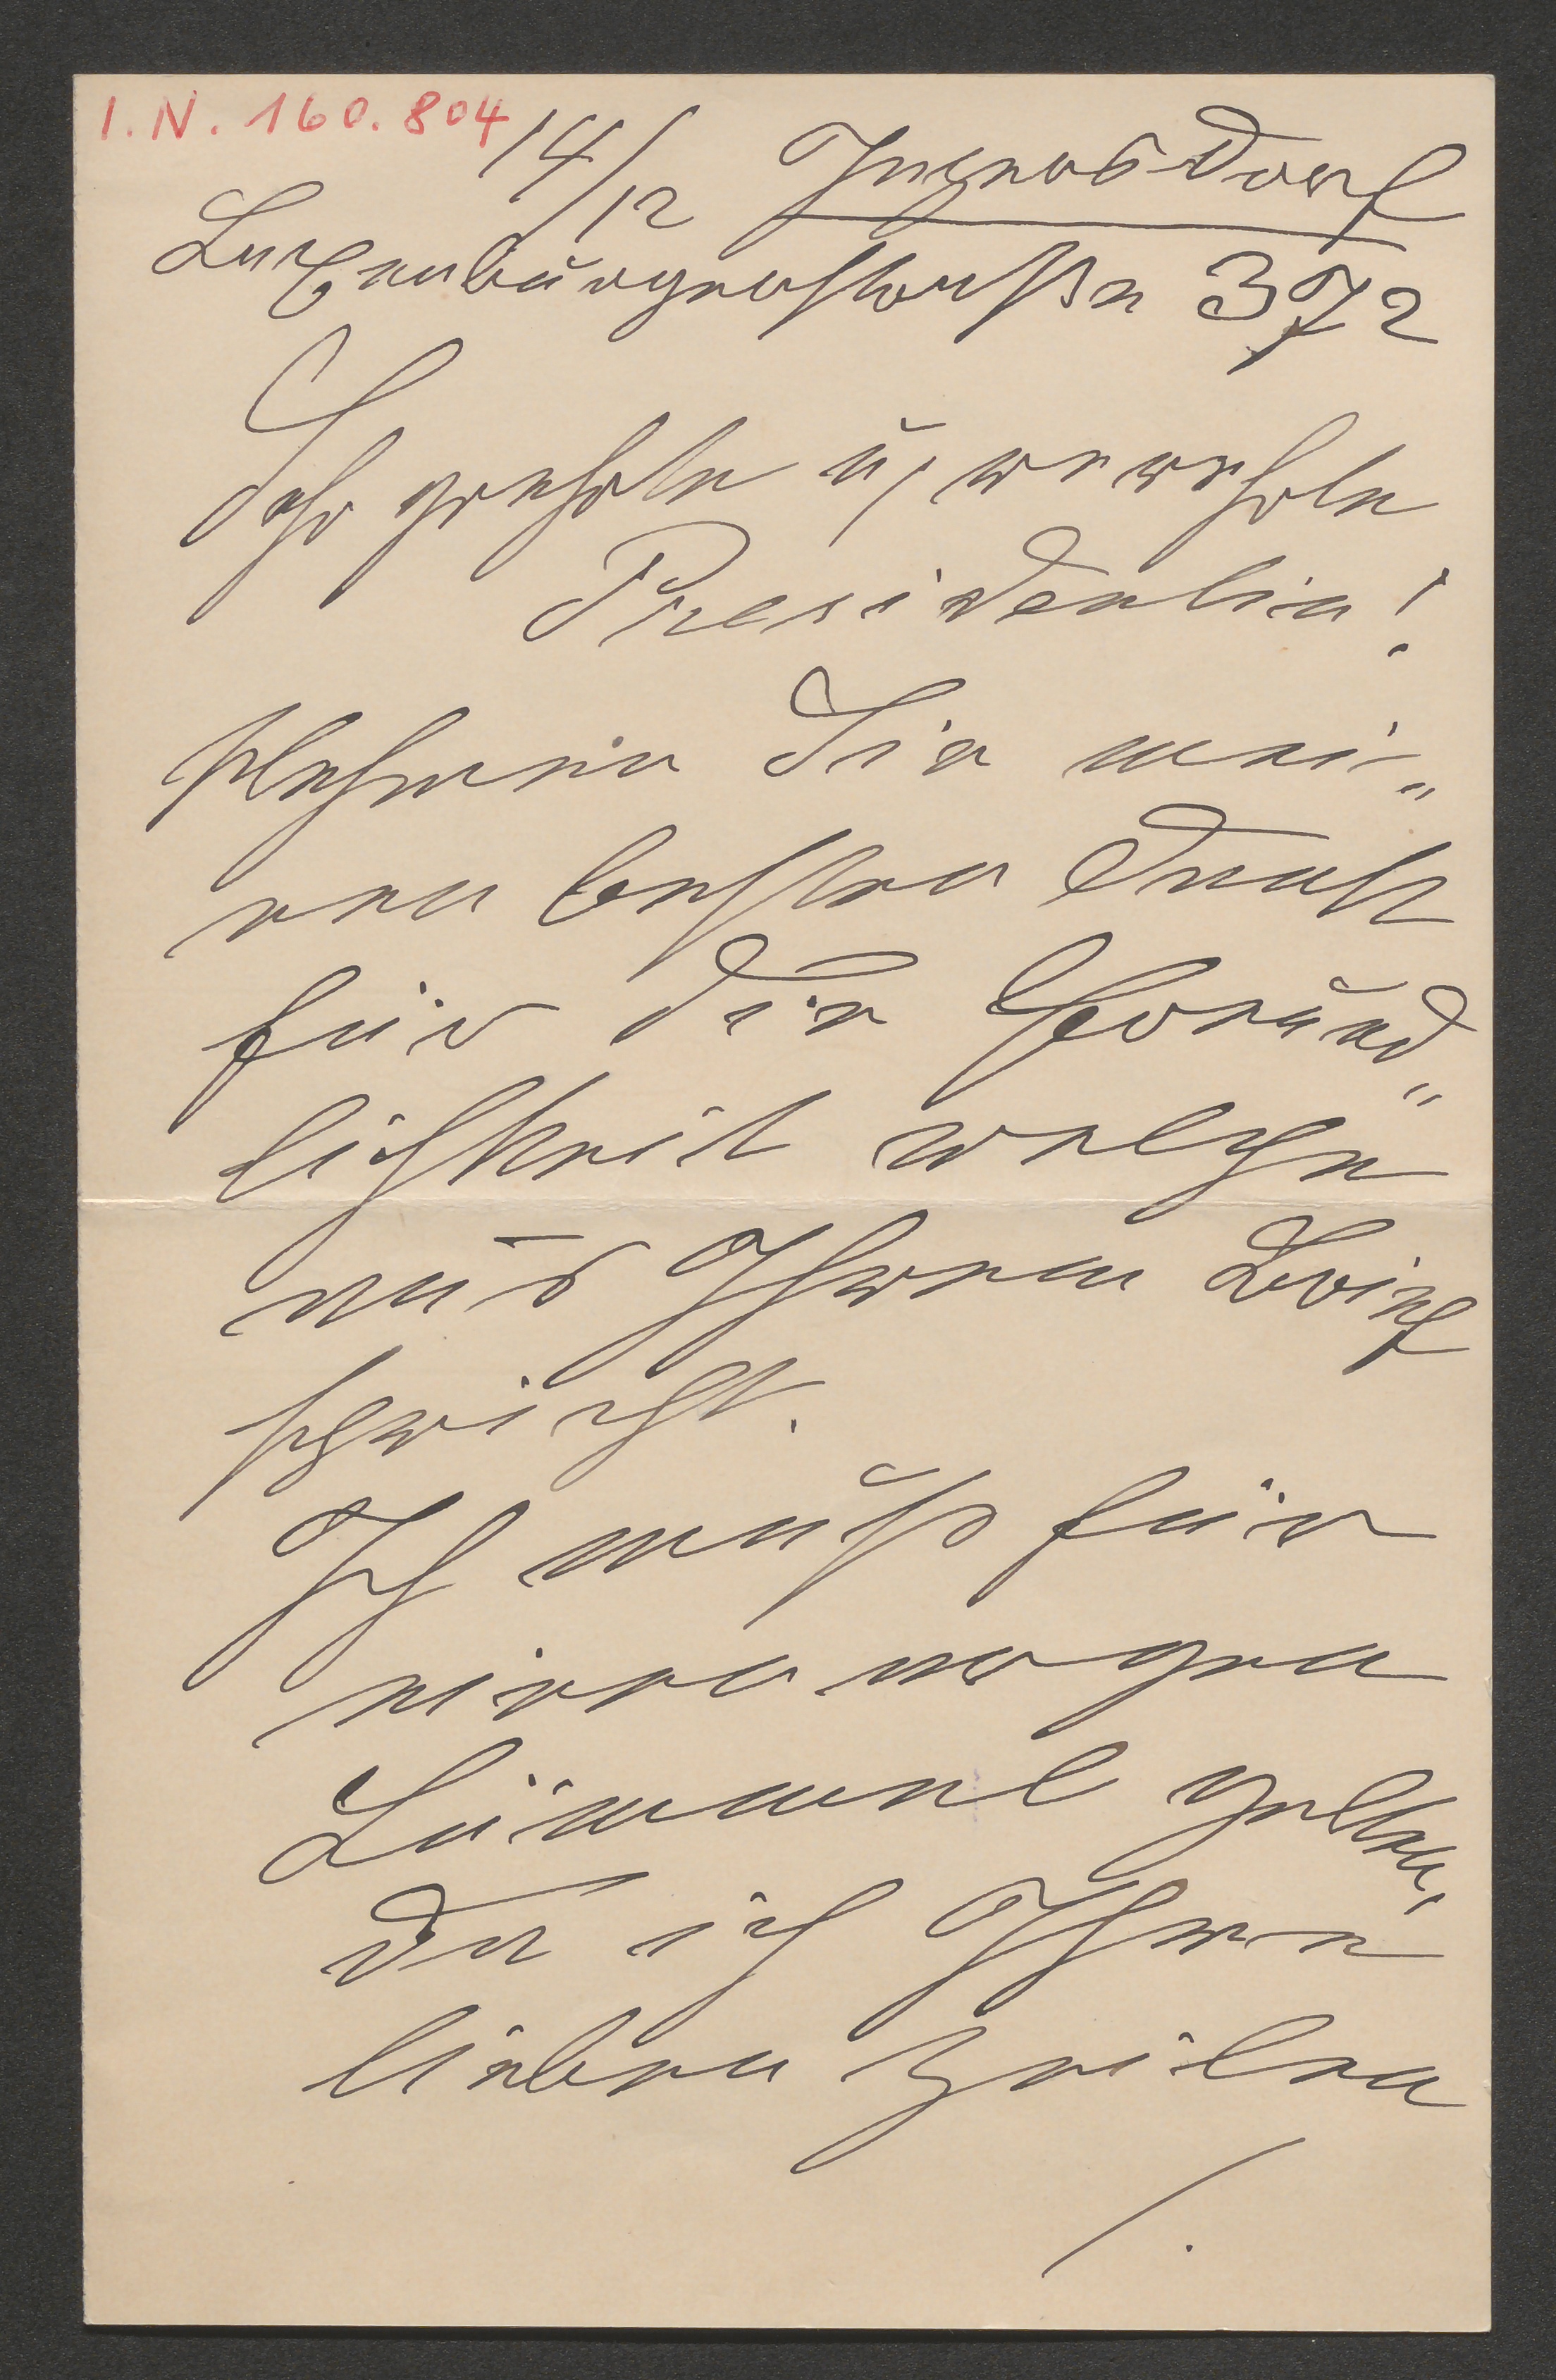 I.N. 160.804
14/12 Inzersdorf
Luxenburgerstraße 372
Sehr geehrte u, verehrte
Presidentin!
Nehmen Sie mei„
nen besten Dank
für die Freund„
lichkeit welche
aus Ihrem Brief
spricht.
Ich muß für
einen argen
Lümmel gelten,
da ich Ihre
lieben Zeilen
/.